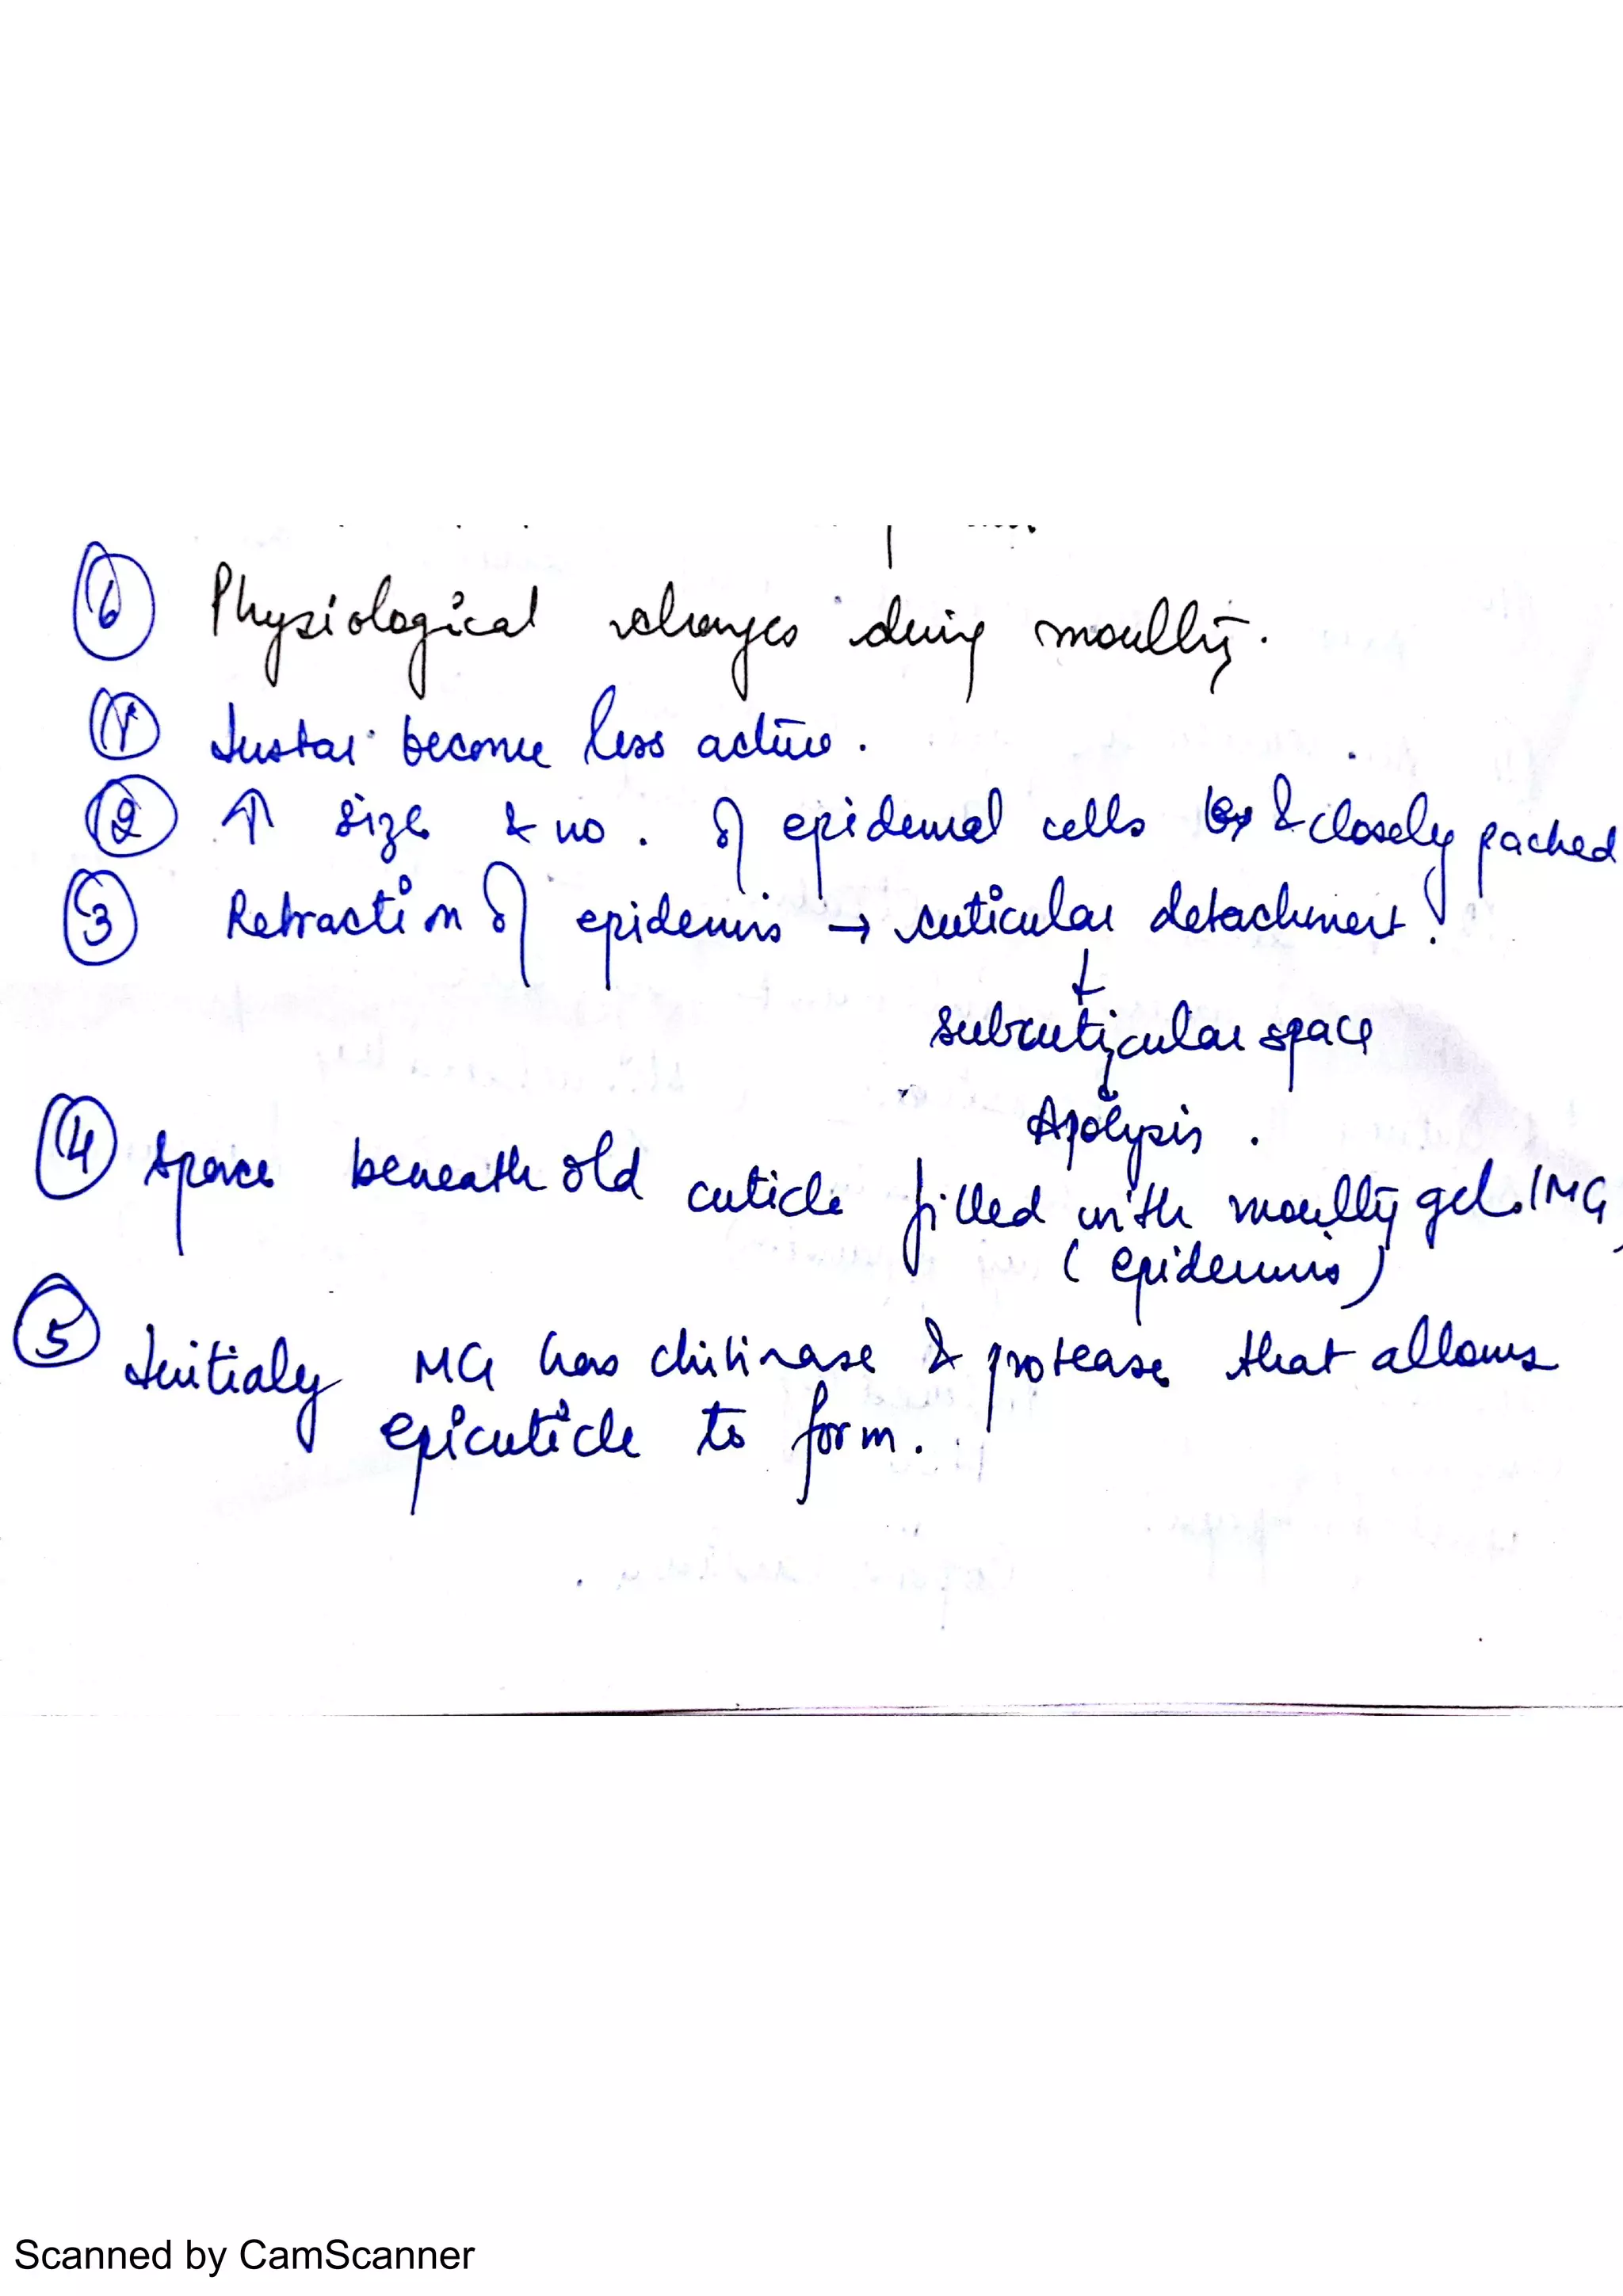 6 Physiological changes during moulting.
1 Instar become less active.
2 ↑ size & no. of epidermal cells & closely packed
3 Retraction of epidermis → cuticular detachment.
↓
subcuticular space
↓
Apolysis.
4 Space beneath old cuticle filled with moulting gel. /MG
(epidermis)
5 Initialy MG has chitinase & protease that allows
epicuticle to form.
Scanned by CamScanner